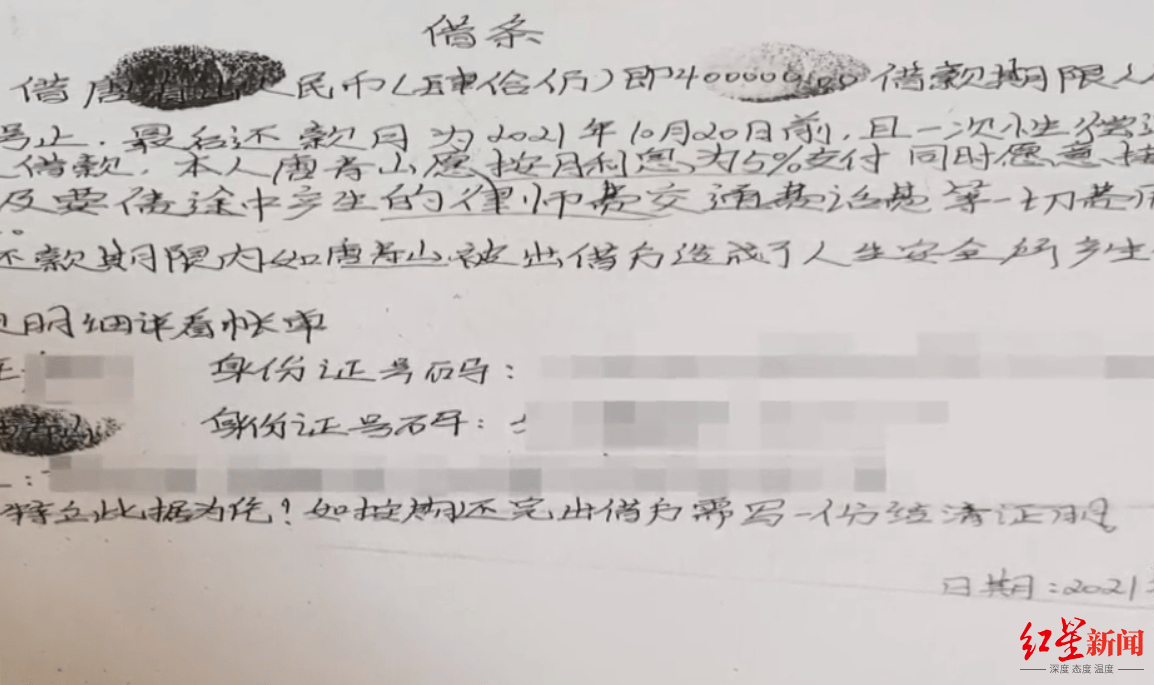 借条
借唐 人民币(肆佰仟)即400000.00借款期限人
号止.最名还款日为2021年10月20日前,且一次性偿还
借款.本人唐寿山愿按月利息为5%支付同时愿意接
及要债途中产生的律师费交通费话费等一切费用
还款期限内如唐寿山被出借方造成了人生安全所产生
明细详看帐单
身份证号石马:
身份证号石马:
特立此据为凭!如按期还完出借方需写一份结清证明
日期:2021
红星新闻
深度 态度 温度